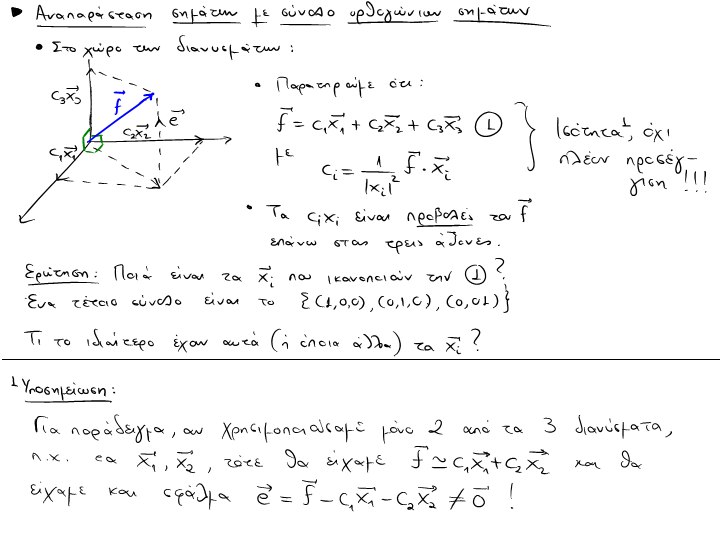 ▶ Αναπαράσταση σημάτων με σύνολο ορθογώνιων σημάτων
• Στο χώρο των διανυσμάτων:
c₃x⃗₃
f⃗
e⃗
c₂x⃗₂
c₁x⃗₁
• Παρατηρούμε ότι:
f⃗ = c₁x⃗₁ + c₂x⃗₂ + c₃x⃗₃ ①
με
cᵢ = 1/|xᵢ|² f⃗ · x⃗ᵢ
Ισότητα¹, όχι
πλέον προσέγ-
γιση !!!
• Τα cᵢxᵢ είναι προβολές του f⃗
επάνω στους τρεις άξονες.
Ερώτηση: Ποιά είναι τα x⃗ᵢ που ικανοποιούν την ① ?
Ένα τέτοιο σύνολο είναι το {(1,0,0), (0,1,0), (0,01)}
Τι το ιδιαίτερο έχουν αυτά (ή όποια άλλα) τα x⃗ᵢ ?
¹ Υποσημείωση:
Για παράδειγμα, αν χρησιμοποιούσαμε μόνο 2 από τα 3 διανύσματα,
π.χ. τα x⃗₁, x⃗₂, τότε θα είχαμε f⃗ ≃ c₁x⃗₁ + c₂x⃗₂ και θα
είχαμε και σφάλμα e⃗ = f⃗ − c₁x⃗₁ − c₂x⃗₂ ≠ 0⃗ !